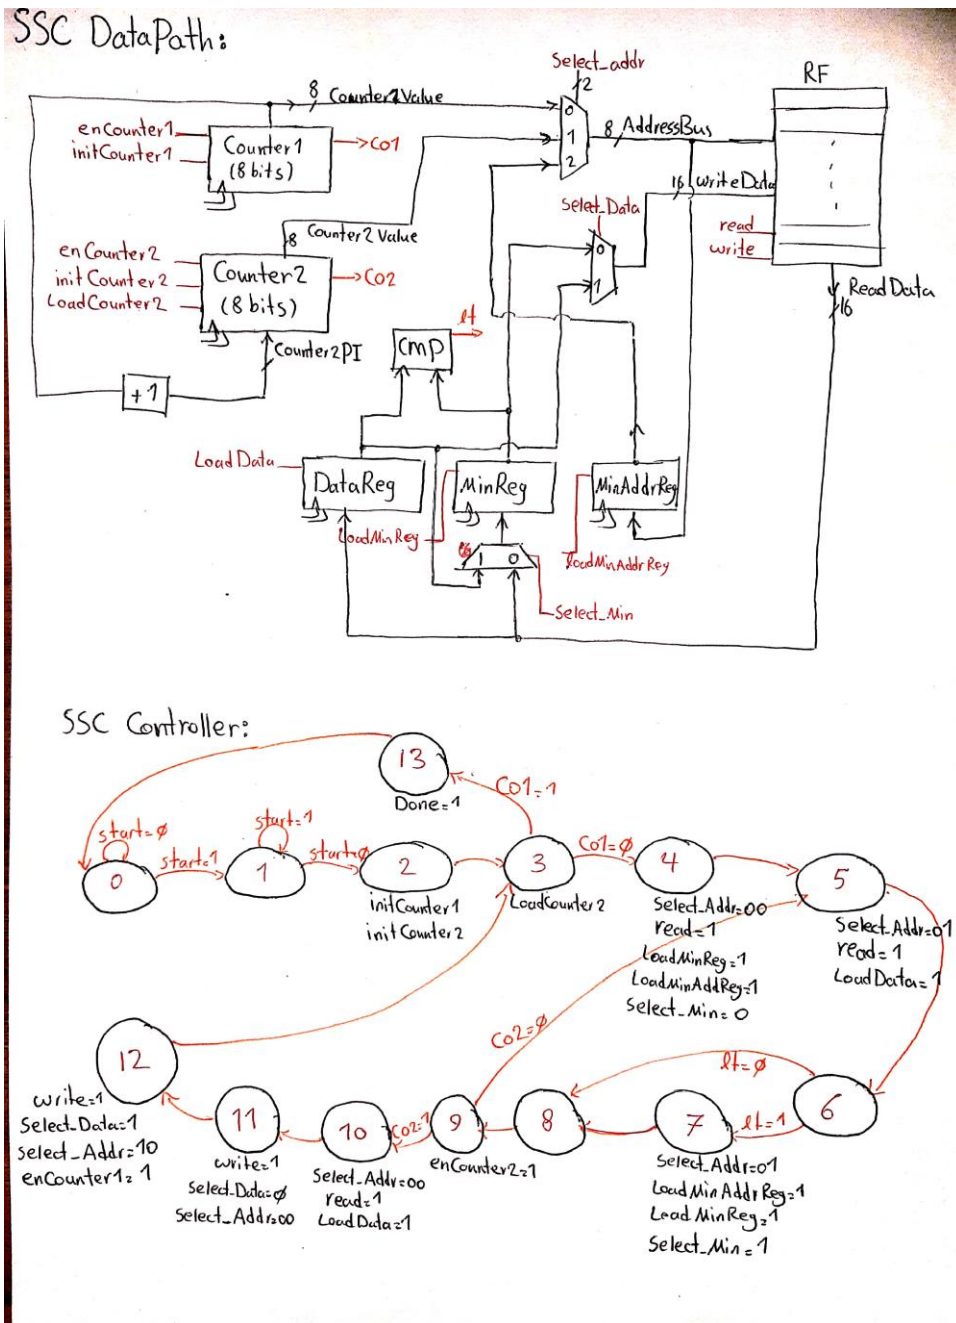 SSC DataPath:
Select_addr
2
RF
8 Counter1Value
0
1
2
8 AddressBus
enCounter1
initCounter1
Counter1
(8 bits)
Co1
16 writeData
Select_Data
0
1
read
write
8 Counter2 Value
enCounter2
initCounter2
LoadCounter2
Counter2
(8 bits)
Co2
ReadData
16
lt
CMP
Counter2PI
+1
LoadData
DataReg
MinReg
MinAddrReg
LoadMinReg
loadMinAddrReg
1 0
Select_Min
SSC Controller:
13
Done=1
Co1=1
start=ø
start=1
start=1
start=ø
Co1=ø
0
1
2
3
4
5
initCounter1
initCounter2
LoadCounter2
Select_Addr=00
read=1
LoadMinReg=1
LoadMinAddReg=1
Select_Min=0
Select_Addr=01
read=1
LoadData=1
Co2=ø
lt=ø
12
11
10
Co2=1
9
8
7
lt=1
6
write=1
Select_Data=1
select_Addr=10
enCounter1=1
write=1
Select_Data=ø
Select_Addr=00
Select_Addr=00
read=1
LoadData=1
enCounter2=1
Select_Addr=01
LoadMinAddrReg=1
LoadMinReg=1
Select_Min=1